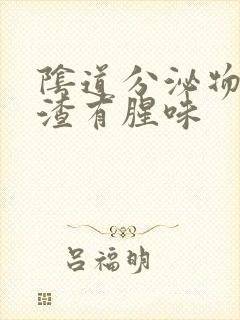 陰道分泌物
渣有腥味
吕福明